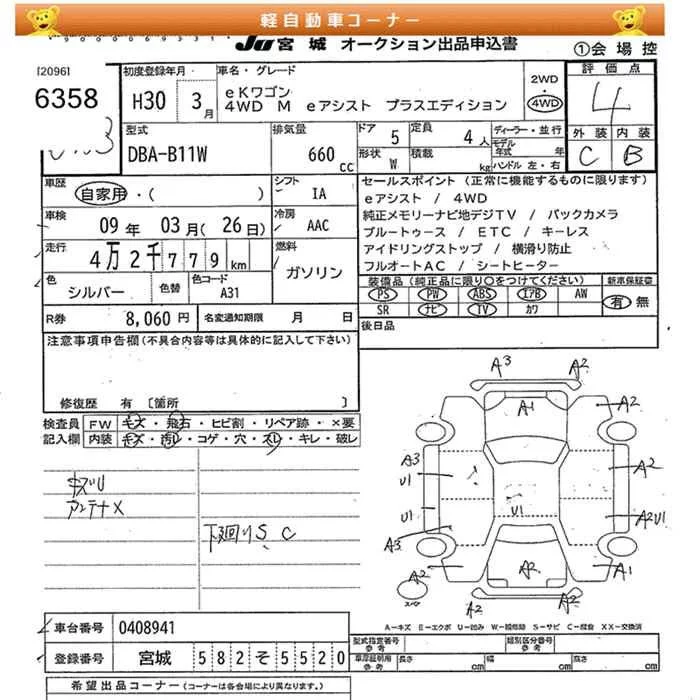 軽自動車コーナー
JU 宮城 オークション出品申込書
①会場控
[2096]
6358
初度登録年月
H30 3月
車名・グレード
eKワゴン
4WD M eアシスト プラスエディション
2WD
・
4WD
評価点
4
外装 内装
C B
型式
DBA-B11W
排気量
660 cc
ドア 5
定員 4人
形状 W
積載 kg
ディーラー・並行
モデル年式 年
ハンドル 左・右
車歴
自家用・( )
シフト
IA
車検
09年 03月(26日)
冷房
AAC
走行
4万2千779km
燃料
ガソリン
色
シルバー
色替
色コード
A31
R券 8,060円
名変通知期限 月 日
セールスポイント (正常に機能するものに限ります)
eアシスト / 4WD
純正メモリーナビ地デジTV / バックカメラ
ブルートゥース / ETC / キーレス
アイドリングストップ / 横滑り防止
フルオートAC / シートヒーター
装備品(純正品に限り○をつけてください)
新車保証書
PS PW ABS エアB AW
SR ナビ TV カワ
有 無
後日品
注意事項申告欄(不具合内容等は具体的に記入して下さい)
修復歴 有 〔箇所 〕
検査員記入欄
FW キズ・飛石・ヒビ割・リペア跡・×要
内装 キズ・汚れ・コゲ・穴・スレ・キレ・破レ
キズU
アンテナX
下廻りS、C
A3 A2
A1 A2
A3 U1 A2
U1 U1 A2U1
A3
A2 A2 A1
スペア
A2 A2
A-キズ E-エクボ U-凹み W-補修跡 S-サビ C-腐食 XX-交換済
車台番号 0408941
登録番号 宮城 582 そ 5520
型式指定番号 参考
類別区分番号 参考
車庫証明用 参考 長さ cm 幅 cm 高さ cm
希望出品コーナー(コーナーは各会場により異なります。)